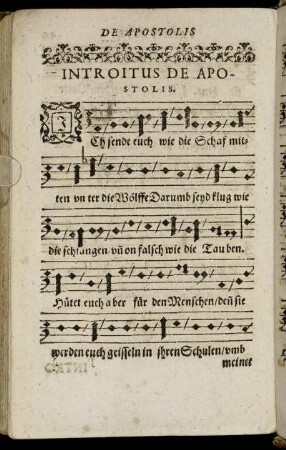 DE APOSTOLIS
INTROITUS DE APO-
STOLIS.
ICh sende euch wie die Schaf mit-
ten vn ter die Wölffe Darumb seyd klug wie
die schlangen/ vñ on falsch wie die Tau ben.
Hütet euch a ber für den Menschen/ deñ sie
werden euch geisseln in jhren Schulen/ vmb
meinet